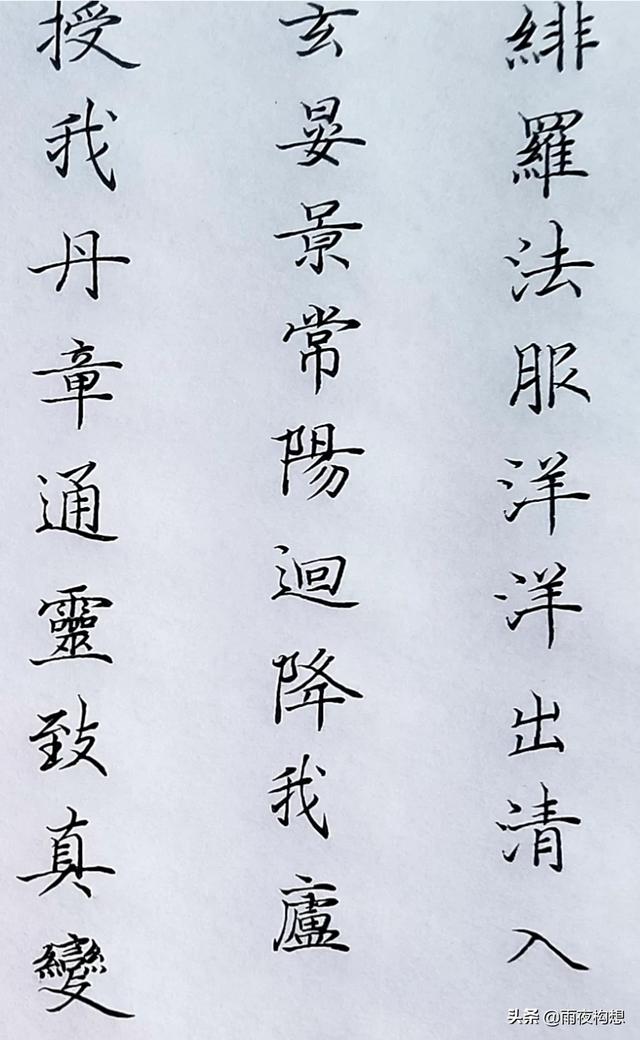 緋羅法服洋洋出清入
玄晏景常陽迴降我廬
授我丹章通靈致真變
头条 @雨夜构想